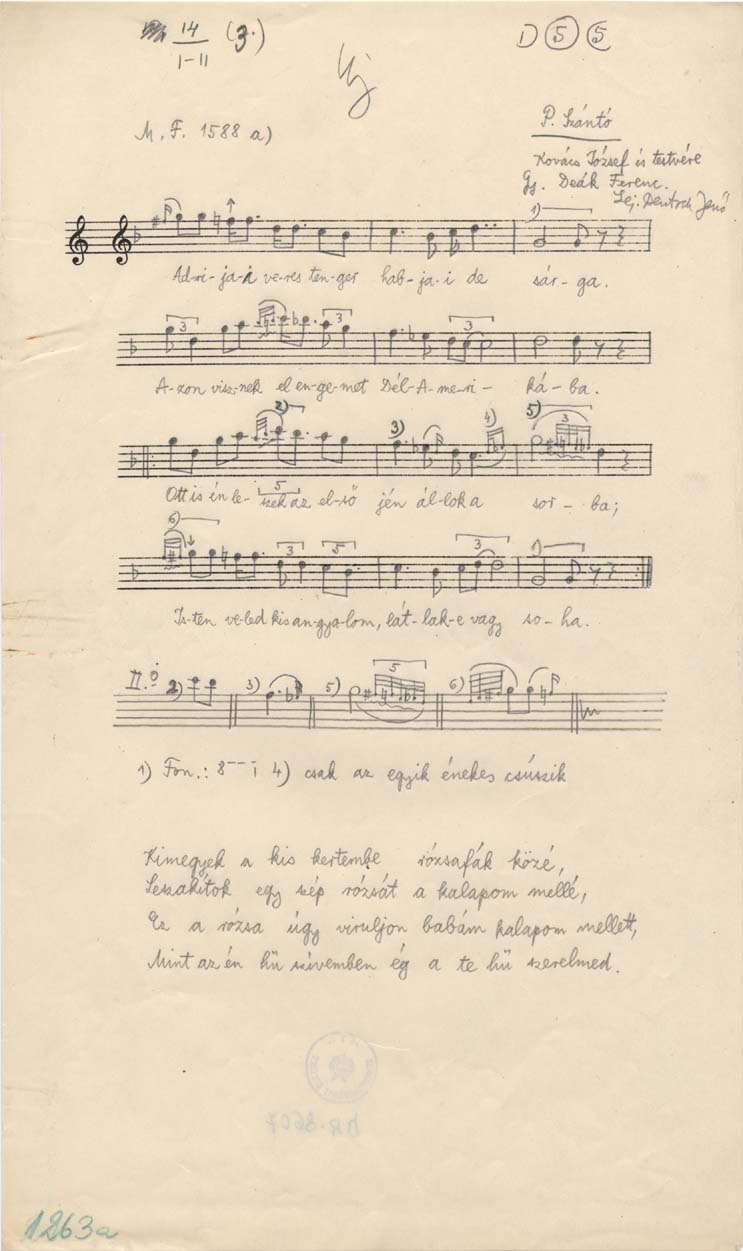 14 (3.)
I-II
D 5 5
Uj
M. F. 1588 a)
P. Szántó
Kovács József és testvére
Gy. Deák Ferenc.
Lej. Deutsch Jenő
1)
Ad-ri-ja-i ve-res ten-ger hab-ja-i de sár-ga.
3 3 3
A-zon visz-nek el en-ge-met Dél-A-me-ri- ká-ba.
2) 3) 4) 5) 3
Ott is én le- szek az el-ső jén ál-lok a sor-ba;
5
6) 3 5 3 1)
Is-ten ve-led kis an-gya-lom, lát-lak-e vagy so-ha.
II.o 2) 3) 5) 5 6)
1) Fon.: 8 -- i 4) csak az egyik énekes csúszik
Kimegyek a kis kertembe rózsafák közé,
Leszakítok egy szép rózsát a kalapom mellé,
Ez a rózsa úgy viruljon babám kalapom mellett,
Mint az én hü szivemben ég a te hü szerelmed.
1263a